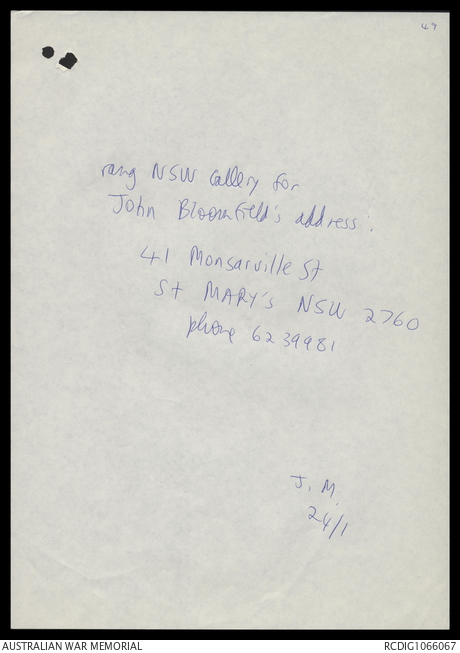 49
rang NSW Gallery for
John Bloomfield's address:
41 Monsarville St
St MARY's NSW 2760
phone 6239981
J. M.
24/1
AUSTRALIAN WAR MEMORIAL
RCDIG1066067